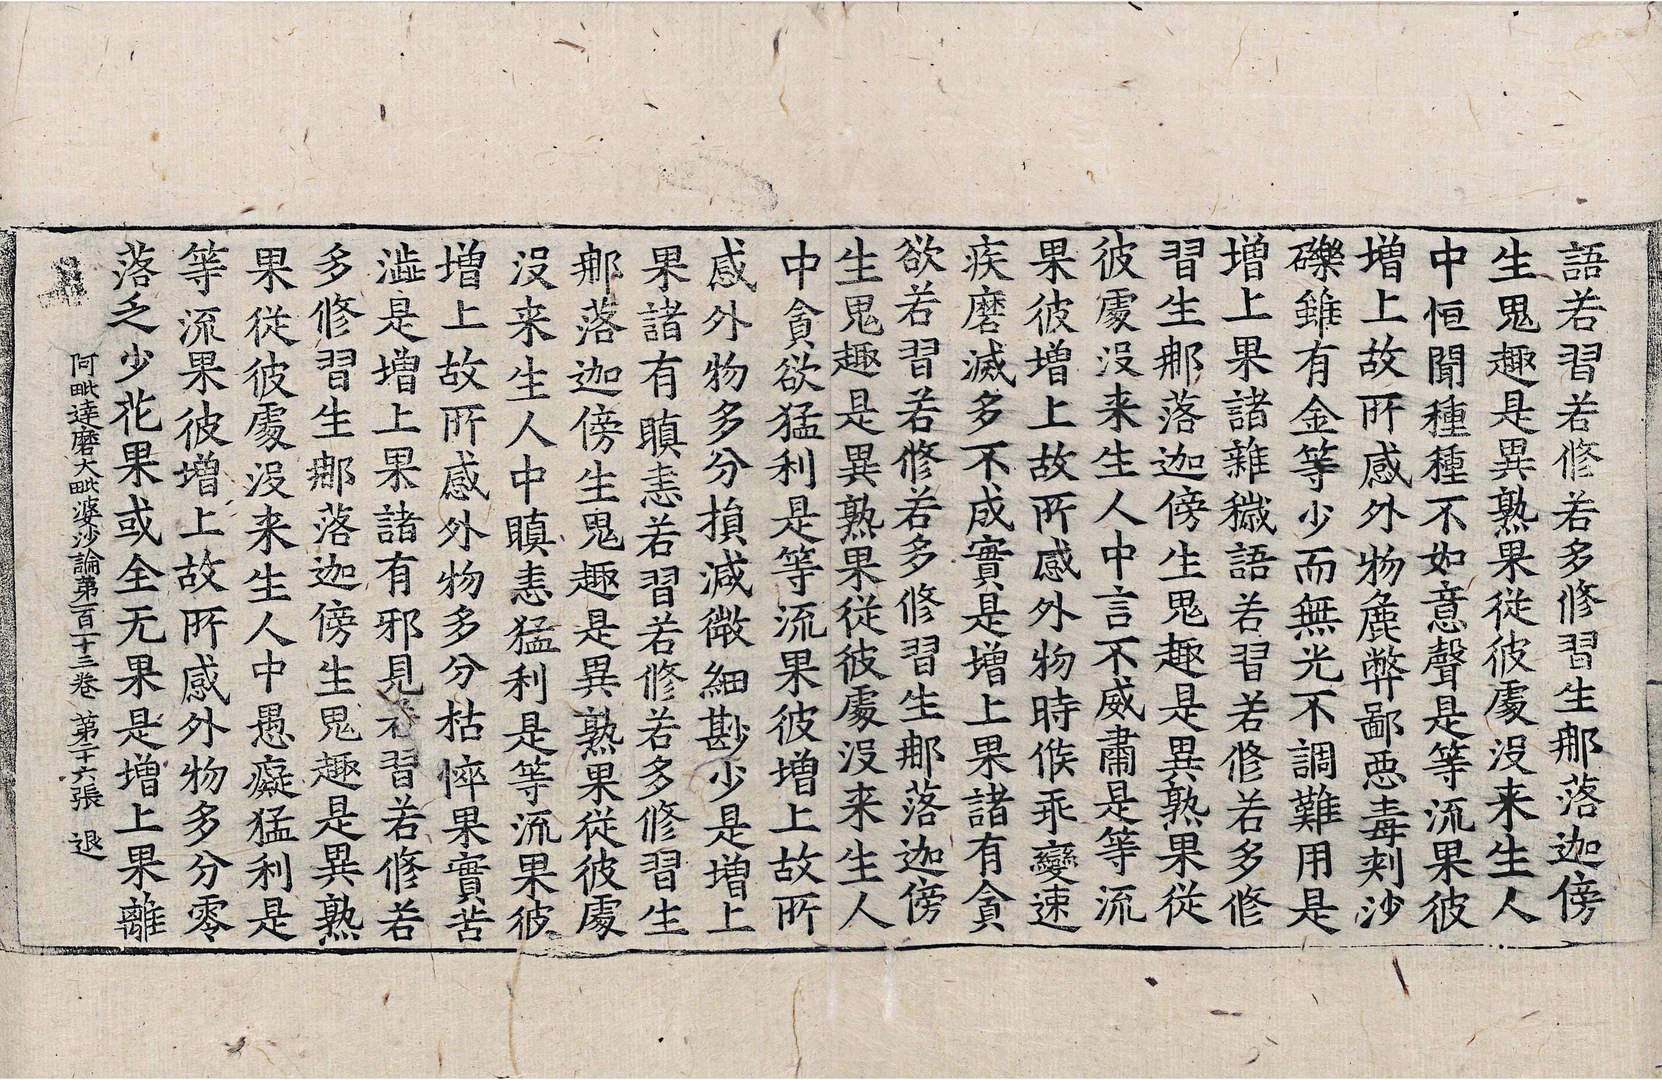 語若習若修若多修習生那落迦傍
生鬼趣是異熟果從彼處没来生人
中恒聞種種不如意聲是等流果彼
增上故所感外物麁弊鄙恶毒刾沙
礫雖有金等少而無光不調難用是
增上果諸雜穢語若習若修若多修
習生那落迦傍生鬼趣是異熟果從
彼處没来生人中言不威肅是等流
果彼增上故所感外物時候乖變速
疾磨滅多不成實是增上果諸有貪
欲若習若修若多修習生那落迦傍
生鬼趣是異熟果從彼處没来生人
中貪欲猛利是等流果彼增上故所
感外物多分損減微細尠少是增上
果諸有瞋恚若習若修若多修習生
那落迦傍生鬼趣是異熟果從彼處
没来生人中瞋恚猛利是等流果彼
增上故所感外物多分枯悴果實苦
澁是增上果諸有邪見若習若修若
多修習生那落迦傍生鬼趣是異熟
果從彼處没来生人中愚癡猛利是
等流果彼增上故所感外物多分零
落乏少花果或全无果是增上果離
阿毗達磨大毗婆沙論第一百一十三卷 第二十六張 退